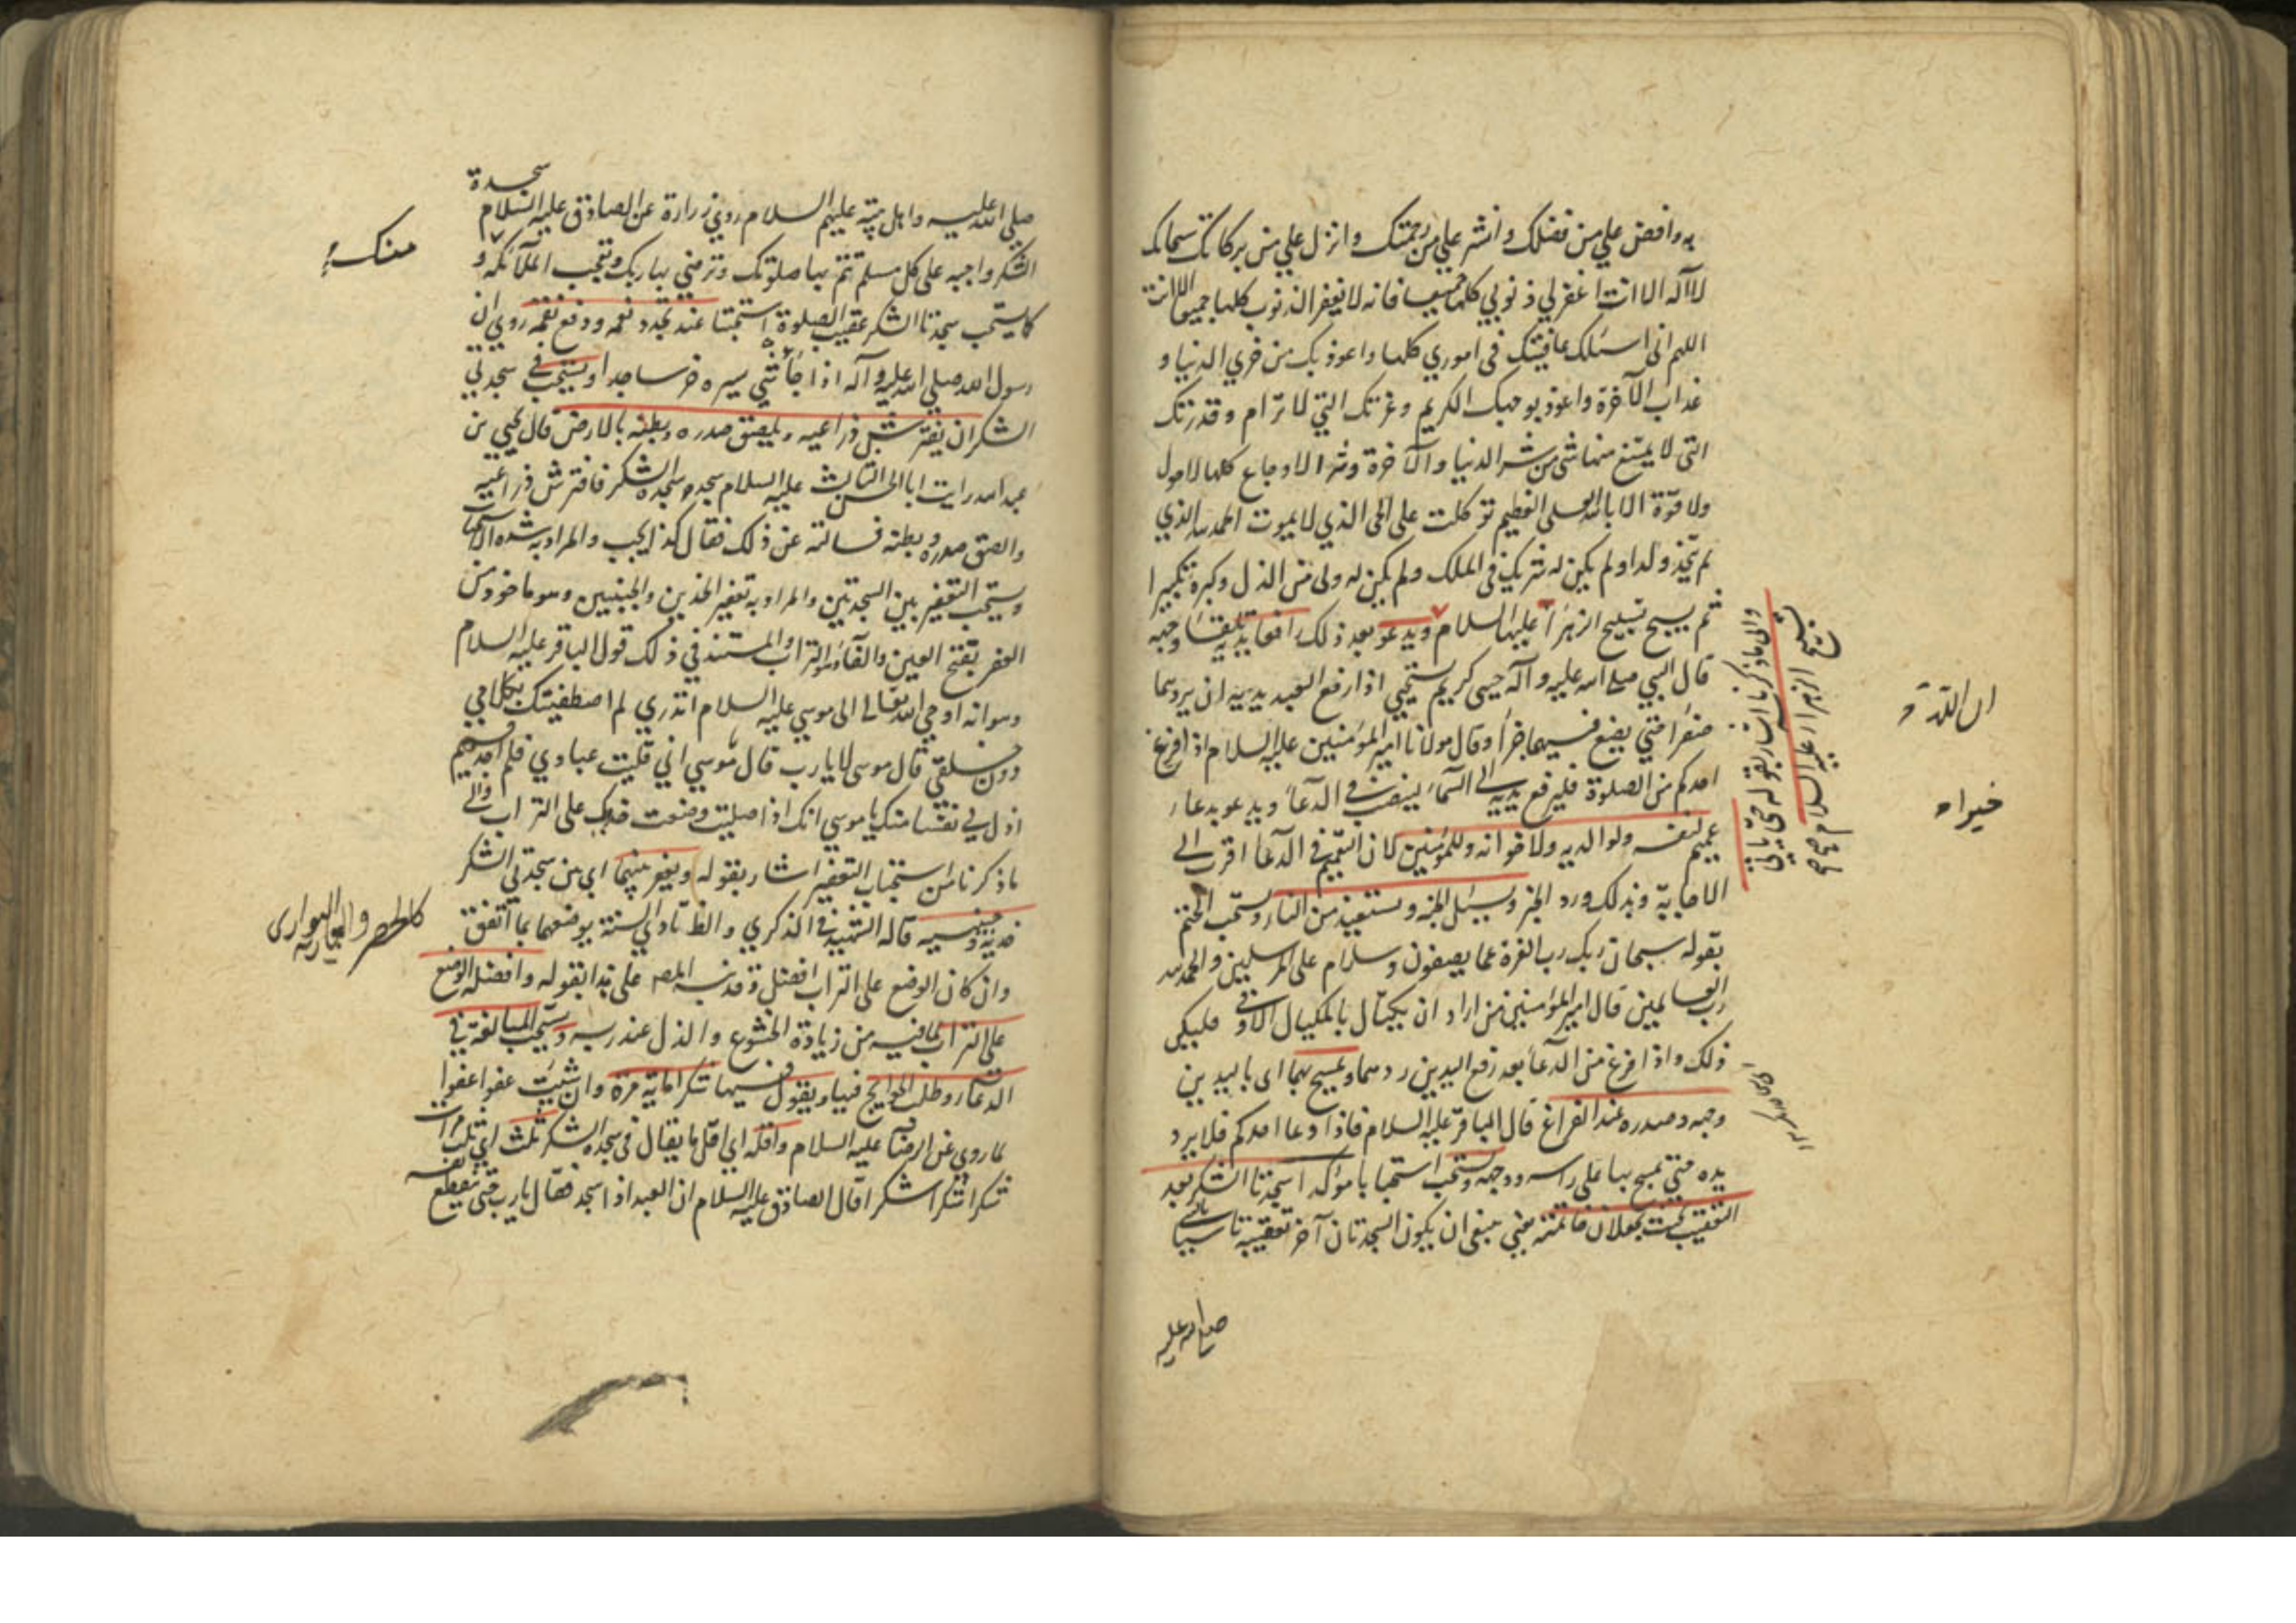 به وافض علي من فضلك وانشر علي من رحمتك وانزل علي من بركاتك سبحانك
لا آله الا انت اغفر لي ذنوبي كلها جميعا فانه لا يغفر الذنوب كلها جميعا الا انت
اللهم اني اسئلك عافيتك في اموري كلها واعوذ بك من خزي الدنيا و
عذاب الآخرة واعوذ بوجهك الكريم وعزتك التي لا ترام وقدرتك
التي لا يمتنع منها شي من شر الدنيا والآخرة وشر الاوجاع كلها لا حول
ولا قوة الا بالله العلي العظيم توكلت على الحي الذي لا يموت الحمد لله الذي
لم يتخذ ولدا ولم يكن له شريك في الملك ولم يكن له ولي من الذل وكبره تكبيرا
ثم يسبح تسبيح الزهرآ عليها السلام ويدعو بعد ذلك رافعا يديه تلقاء وجهه
قال النبي صلى الله عليه وآله حيي كريم يستحيي اذا رفع العبد يديه ان يردهما
صفرا حتي يضع فيهما خيرا وقال مولانا امير المؤمنين عليه السلام اذا فرغ
احدكم من الصلوة فليرفع يديه الى السمآء لينصب في الدعآ ويدعو بدعاء
عميم لنفسه ولوالديه ولاخوانه وللمؤمنين لان التعميم في الدعآ اقرب الى
الاجابة وبذلك ورد الخبر ويسئل الجنة ويستعيذ من النار ويستحب الختم
بقوله سبحان ربك رب العزة عما يصفون وسلام على المرسلين والحمد لله
رب العالمين قال امير المؤمنين من اراد ان يكتال بالمكيال الاوفى فليكن
ذلك واذا فرغ من الدعآ بعد رفع اليدين ردهما ويمسح بهما اي باليدين
وجهه وصدره عند الفراغ قال الباقر عليه السلام فاذا دعا احدكم فلا يرد
يده حتي يمسح بها على راسه ووجهه ويستحب استحبابا مؤكدا سجدتا الشكر بعد
التعقيب بحيث يجعلان خاتمته يعني ينبغي ان يكون السجدتان آخر تعقيبه تاسيا بالنبي
صلى الله عليه
تسبيح الزهرا عليه السلام
والى ما ذكرنا اشار بقوله
ان الله
خيراه
سجدة
صلى الله عليه واهل بيته عليهم السلام روي زرارة عن الصادق عليه السلام
الشكر واجبة على كل مسلم تتم بها صلوتك وترضي بها ربك وتعجب الملآئكه و
كما يستحب سجدتا الشكر عقيب الصلوة استحبتا عند تجدد نعمه ودفع نقمه روي ان
رسول الله صلى الله عليه وآله اذا جائه شي يسره خر ساجدا ويستحب في سجدتي
الشكر ان يفترش ذراعيه ويلصق صدره وبطنه بالارض قال يحيي بن
عبد الرحمن رايت ابا الحسن الثالث عليه السلام سجد سجدة الشكر فافترش ذراعيه
والصق صدره وبطنه فسالته عن ذلك فقال كذا يجب والمراد به شدة الاستحباب
ويستحب التعفير بين السجدتين والمراد به تعفير الخدين والجبينين وهو ماخوذ من
العفر بفتح العين والفآء وهو التراب والمستند في ذلك قول الباقر عليه السلام
وهو انه اوحي الله تعالى الى موسي عليه السلام اتدري لم اصطفيتك بكلامي
دون خلقي قال موسى لا يارب قال يا موسي اني قلبت عبادي فلم اجد فيهم
اذل لي نفسا منك يا موسي انك اذا صليت وضعت خدك على التراب والى
ما ذكرنا من استحباب التعفير اشار بقوله ويعفر بينهما اي بين سجدتي الشكر
خديه وجبينيه قاله الشهيد في الذكري والظ تادي السنة بوضعهما بما اتفق
وان كان الوضع على التراب افضل وقد نبه المص على هذا بقوله وافضله الوضع
على التراب لما فيه من زيادة الخشوع والذل عند ربه ويستحب المبالغة في
الدعآء وطلب الحوايج فيها ويقول فيهما شكرا مائة مرة وان شئت عفوا عفوا
لما روي عن الرضآ عليه السلام واقله اي اقل ما يقال في سجدة الشكر ثلث اي ثلث مرات
شكرا شكرا شكرا قال الصادق عليه السلام ان العبد اذا سجد فقال يارب حتي ينقطع نفسه
كالحصر والبواري